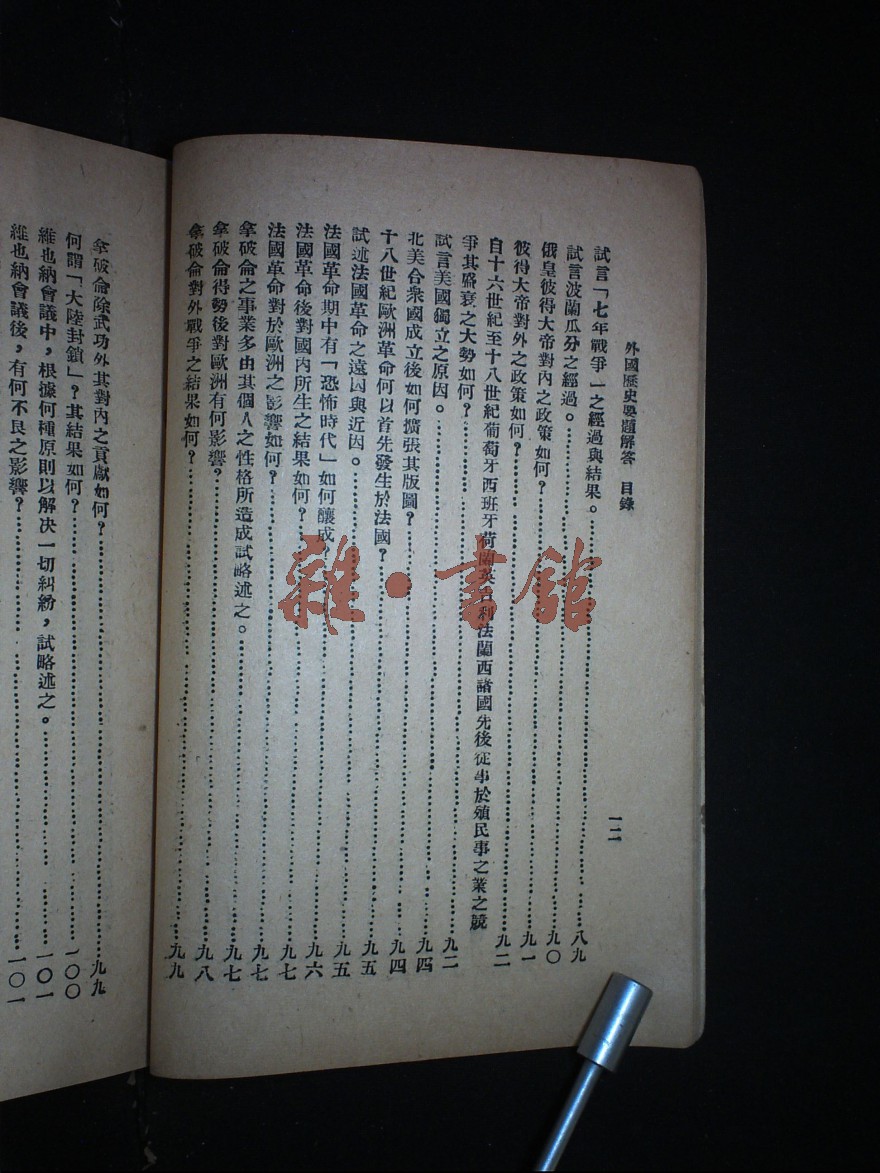 外國歷史要題解答　目錄
一二
試言「七年戰爭」之經過與結果。……八九
試言波蘭瓜分之經過。……九〇
俄皇彼得大帝對內之政策如何？……九一
彼得大帝對外之政策如何？……九二
自十六世紀至十八世紀葡萄牙西班牙荷蘭英吉利法蘭西諸國先後從事於殖民事之業之競
爭其盛衰之大勢如何？……九二
試言美國獨立之原因。……九四
北美合衆國成立後如何擴張其版圖？……九四
十八世紀歐洲革命何以首先發生於法國？……九五
試述法國革命之遠因與近因。……九五
法國革命期中有「恐怖時代」如何釀成？……九六
法國革命後對國內所生之結果如何？……九七
法國革命對於歐洲之影響如何？……九七
拿破侖之事業多由其個人之性格所造成試略述之。……九七
拿破侖得勢後對歐洲有何影響？……九八
拿破侖對外戰爭之結果如何？……九九
拿破侖除武功外其對內之貢獻如何？……九九
何謂「大陸封鎖」？其結果如何？……一〇〇
維也納會議中，根據何種原則以解决一切糾紛，試略述之。……一〇一
維也納會議後，有何不良之影響？……一〇一
雜·書館